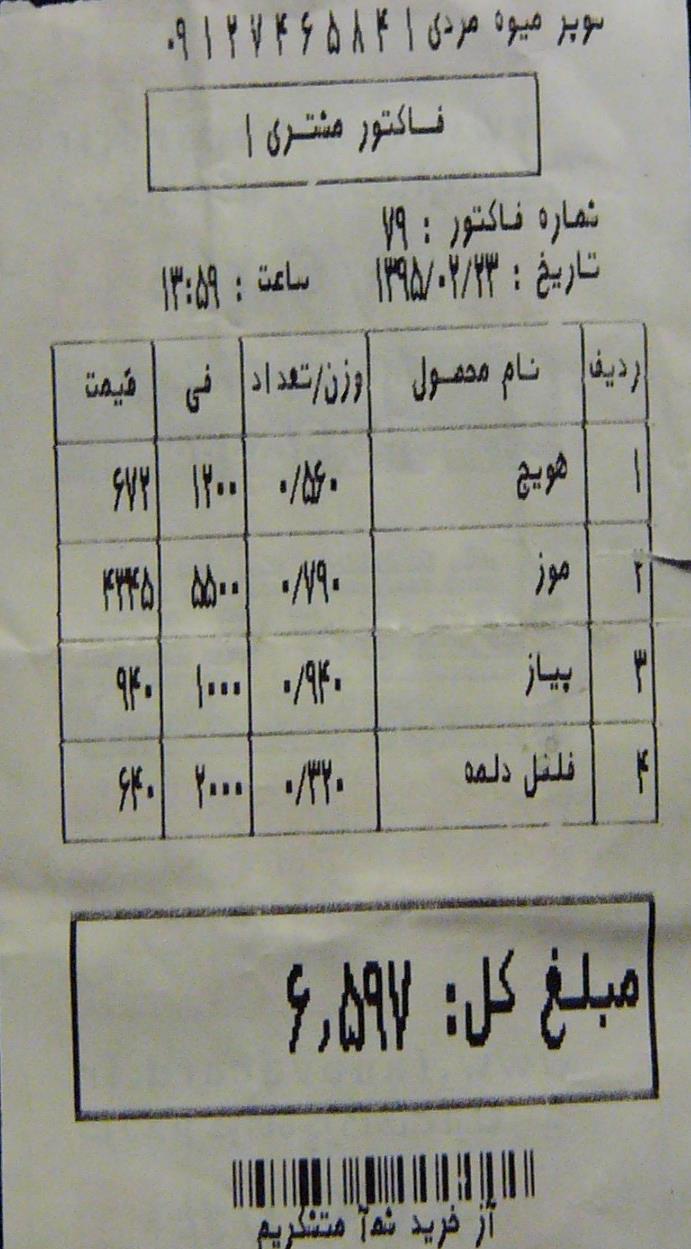 سوپر میوه مردی ۰۹۱۲۷۴۶۵۸۴۱
فاکتور مشتری ۱
شماره فاکتور : ۷۹
تاریخ : ۱۳۹۵/۰۲/۲۳ ساعت : ۱۳:۵۹
ردیف نام محصول وزن/تعداد فی قیمت
۱ هویج ۰/۵۶۰ ۱۲۰۰ ۶۷۲
۲ موز ۰/۷۹۰ ۵۵۰۰ ۴۳۴۵
۳ پیاز ۰/۹۴۰ ۱۰۰۰ ۹۴۰
۴ فلفل دلمه ۰/۳۲۰ ۲۰۰۰ ۶۴۰
مبلغ کل: ۶,۵۹۷
از خرید شما متشکریم